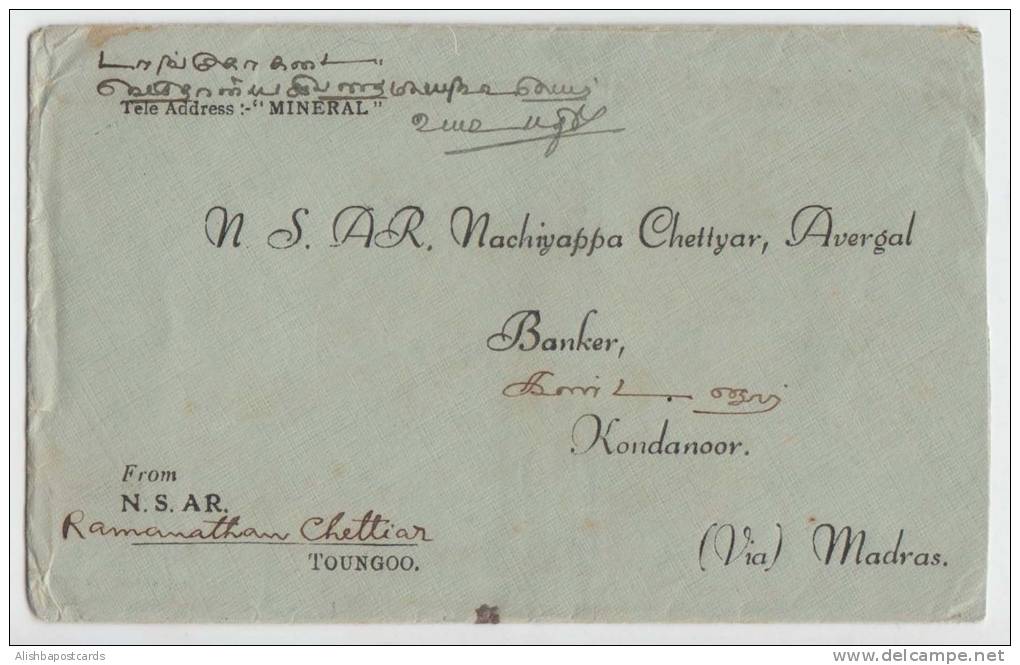 டாங்கோ கடை
Tele Address :-" MINERAL "
N. S. AR. Nachiyappa Chettyar, Avergal
Banker,
Kondanoor.
From
N. S. AR.
Ramanathan Chettiar
TOUNGOO.
(Via) Madras.
Alishbapostcards
www.delcampe.net